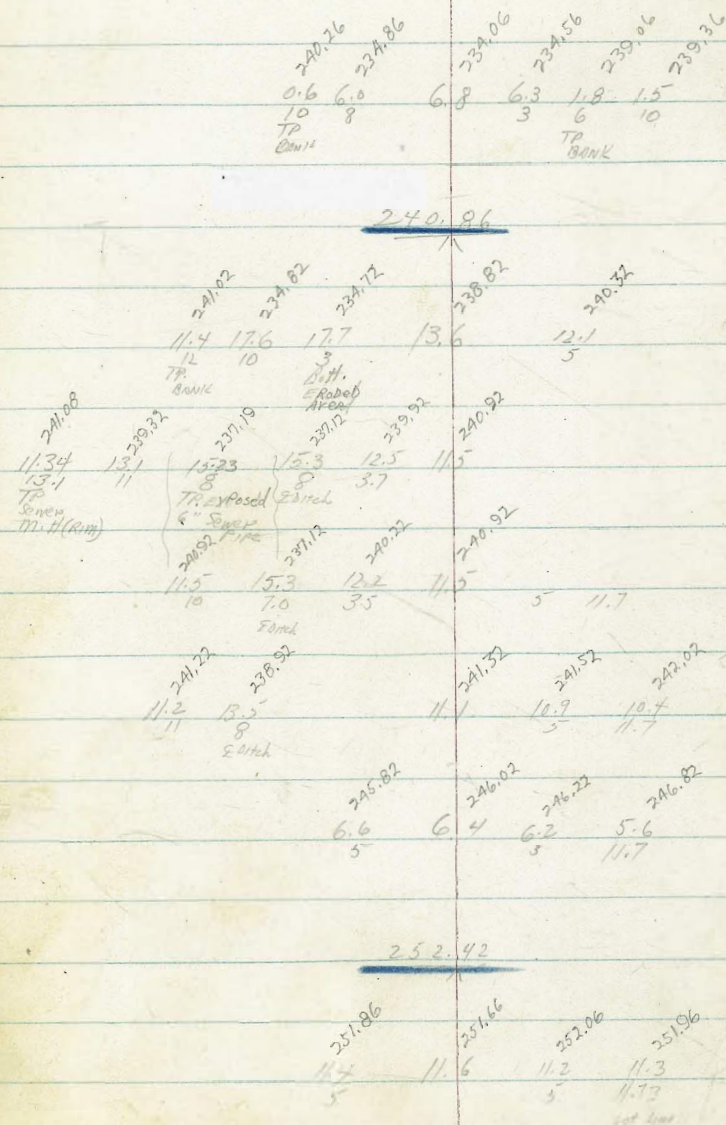 240.26 234.86 234.06 234.56 239.06 239.36
0.6 6.0 6.8 6.3 1.8 1.5
10 8 3 6 10
TP TP
BANK BANK
240.86
241.02 234.82 234.72 238.82 240.32
11.4 17.6 17.7 13.6 12.1
12 10 3 5
TP. Bott.
BANK ERODED
AREA
241.08 239.32 237.19 237.12 239.92 240.92
11.34 13.1 15.23 15.3 12.5 11.5
13.1 11 8 8 3.7
TP TP. EXPOSED ℄ Ditch
Sewer 6" Sewer
M.H (RIM) PIPE
240.92 237.12 240.22 240.92
11.5 15.3 12.2 11.5
10 7.0 3.5 5 11.7
℄ Ditch
241.22 238.92 241.32 241.52 242.02
11.2 13.5 11.1 10.9 10.4
11 8 5 11.7
℄ Ditch
245.82 246.02 246.22 246.82
6.6 6.4 6.2 5.6
5 3 11.7
252.42
251.86 251.66 252.06 251.96
11.4 11.6 11.2 11.3
5 5 11.73
Lot Line